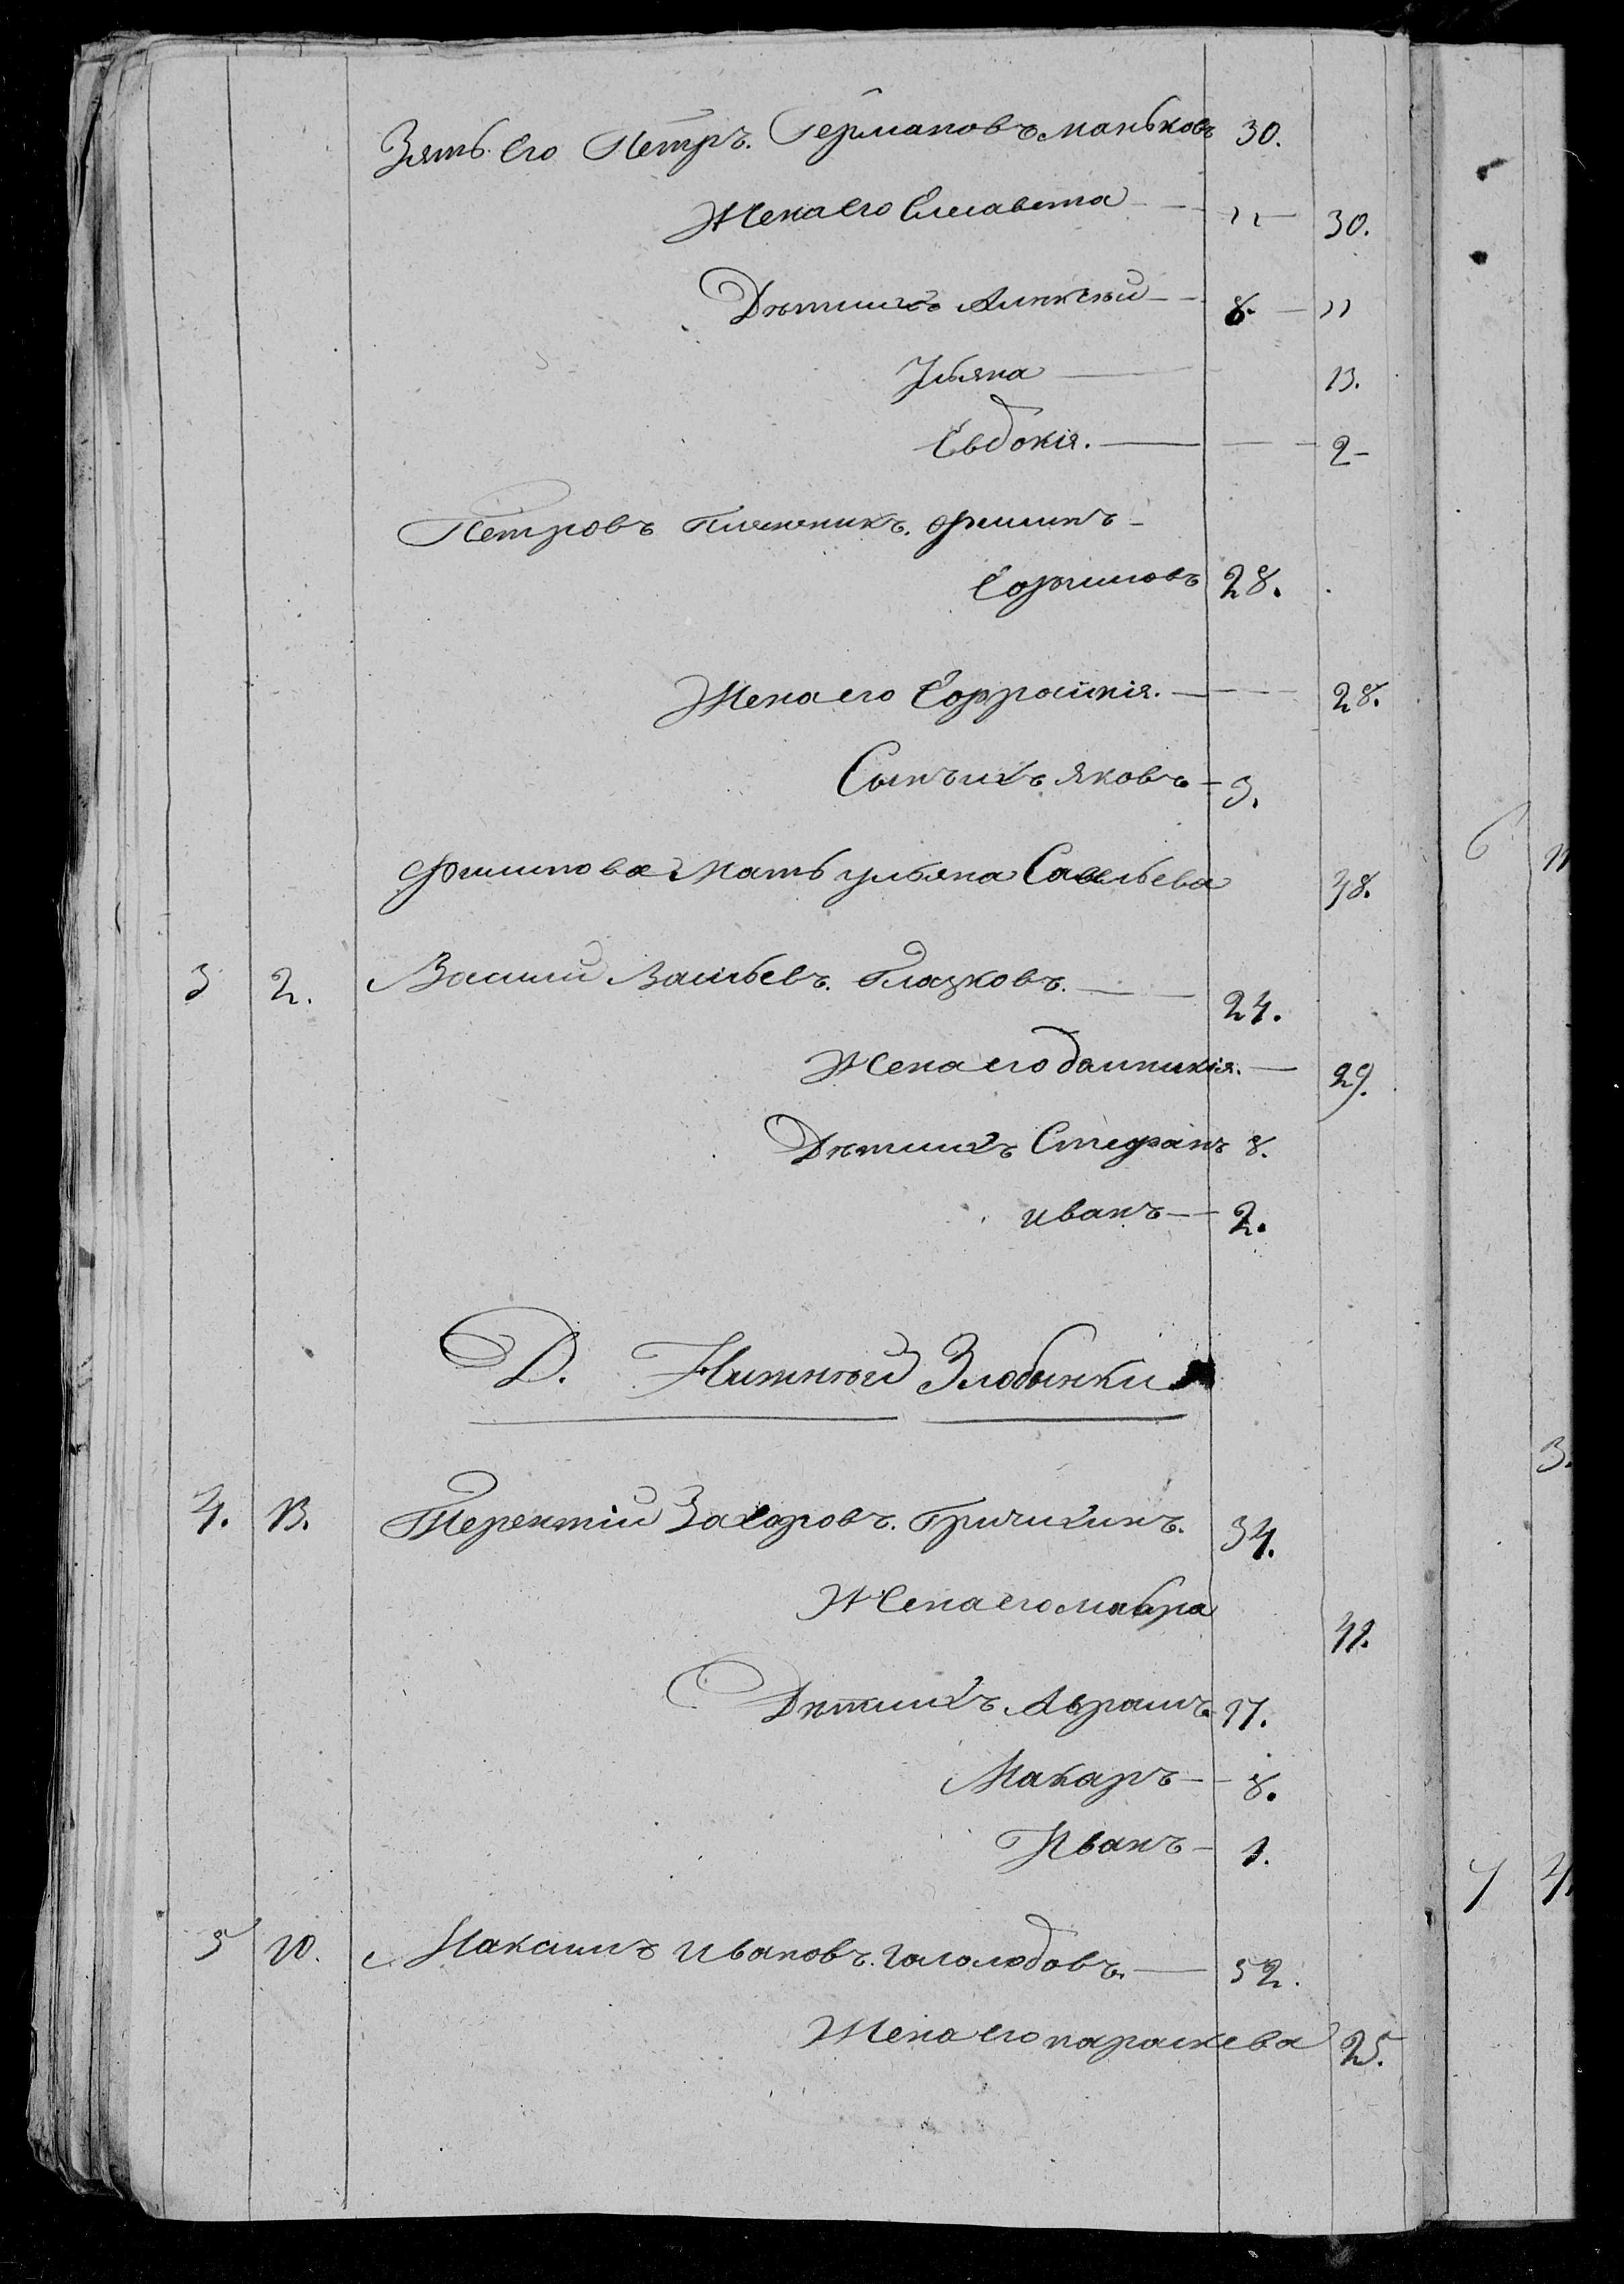 Зять Его Петръ. Германовъ маньковъ 30.
Жена его Елисавета — " — 30.
Дѣти ихъ Аликсѣй — 8. — "
Ульяна — 13.
Евдокія. — 2 -
Петровъ племеникъ. филипъ -
Ефимовъ 28.
Жена его Ефросинія. — 28.
Сынъ ихъ яковъ - 3.
филипова мать ульяна Савельева 48.
3 2. Василій Васильевъ. Глазковъ. — 24.
Жена его домникія. — 29.
Дѣти ихъ Стефанъ 8.
иванъ — 2.
Д. Нижнѣй Злобынки
4. 13. Терентій Захаровъ. Гричихинъ. 34.
Жена его мавра 41.
Дѣти ихъ Аврамъ 17.
Макаръ — 8.
Иванъ - 1.
5 10. Максимъ ивановъ. гололодовъ. — 52.
Жена его параскева 25.
6
3.
7 4.